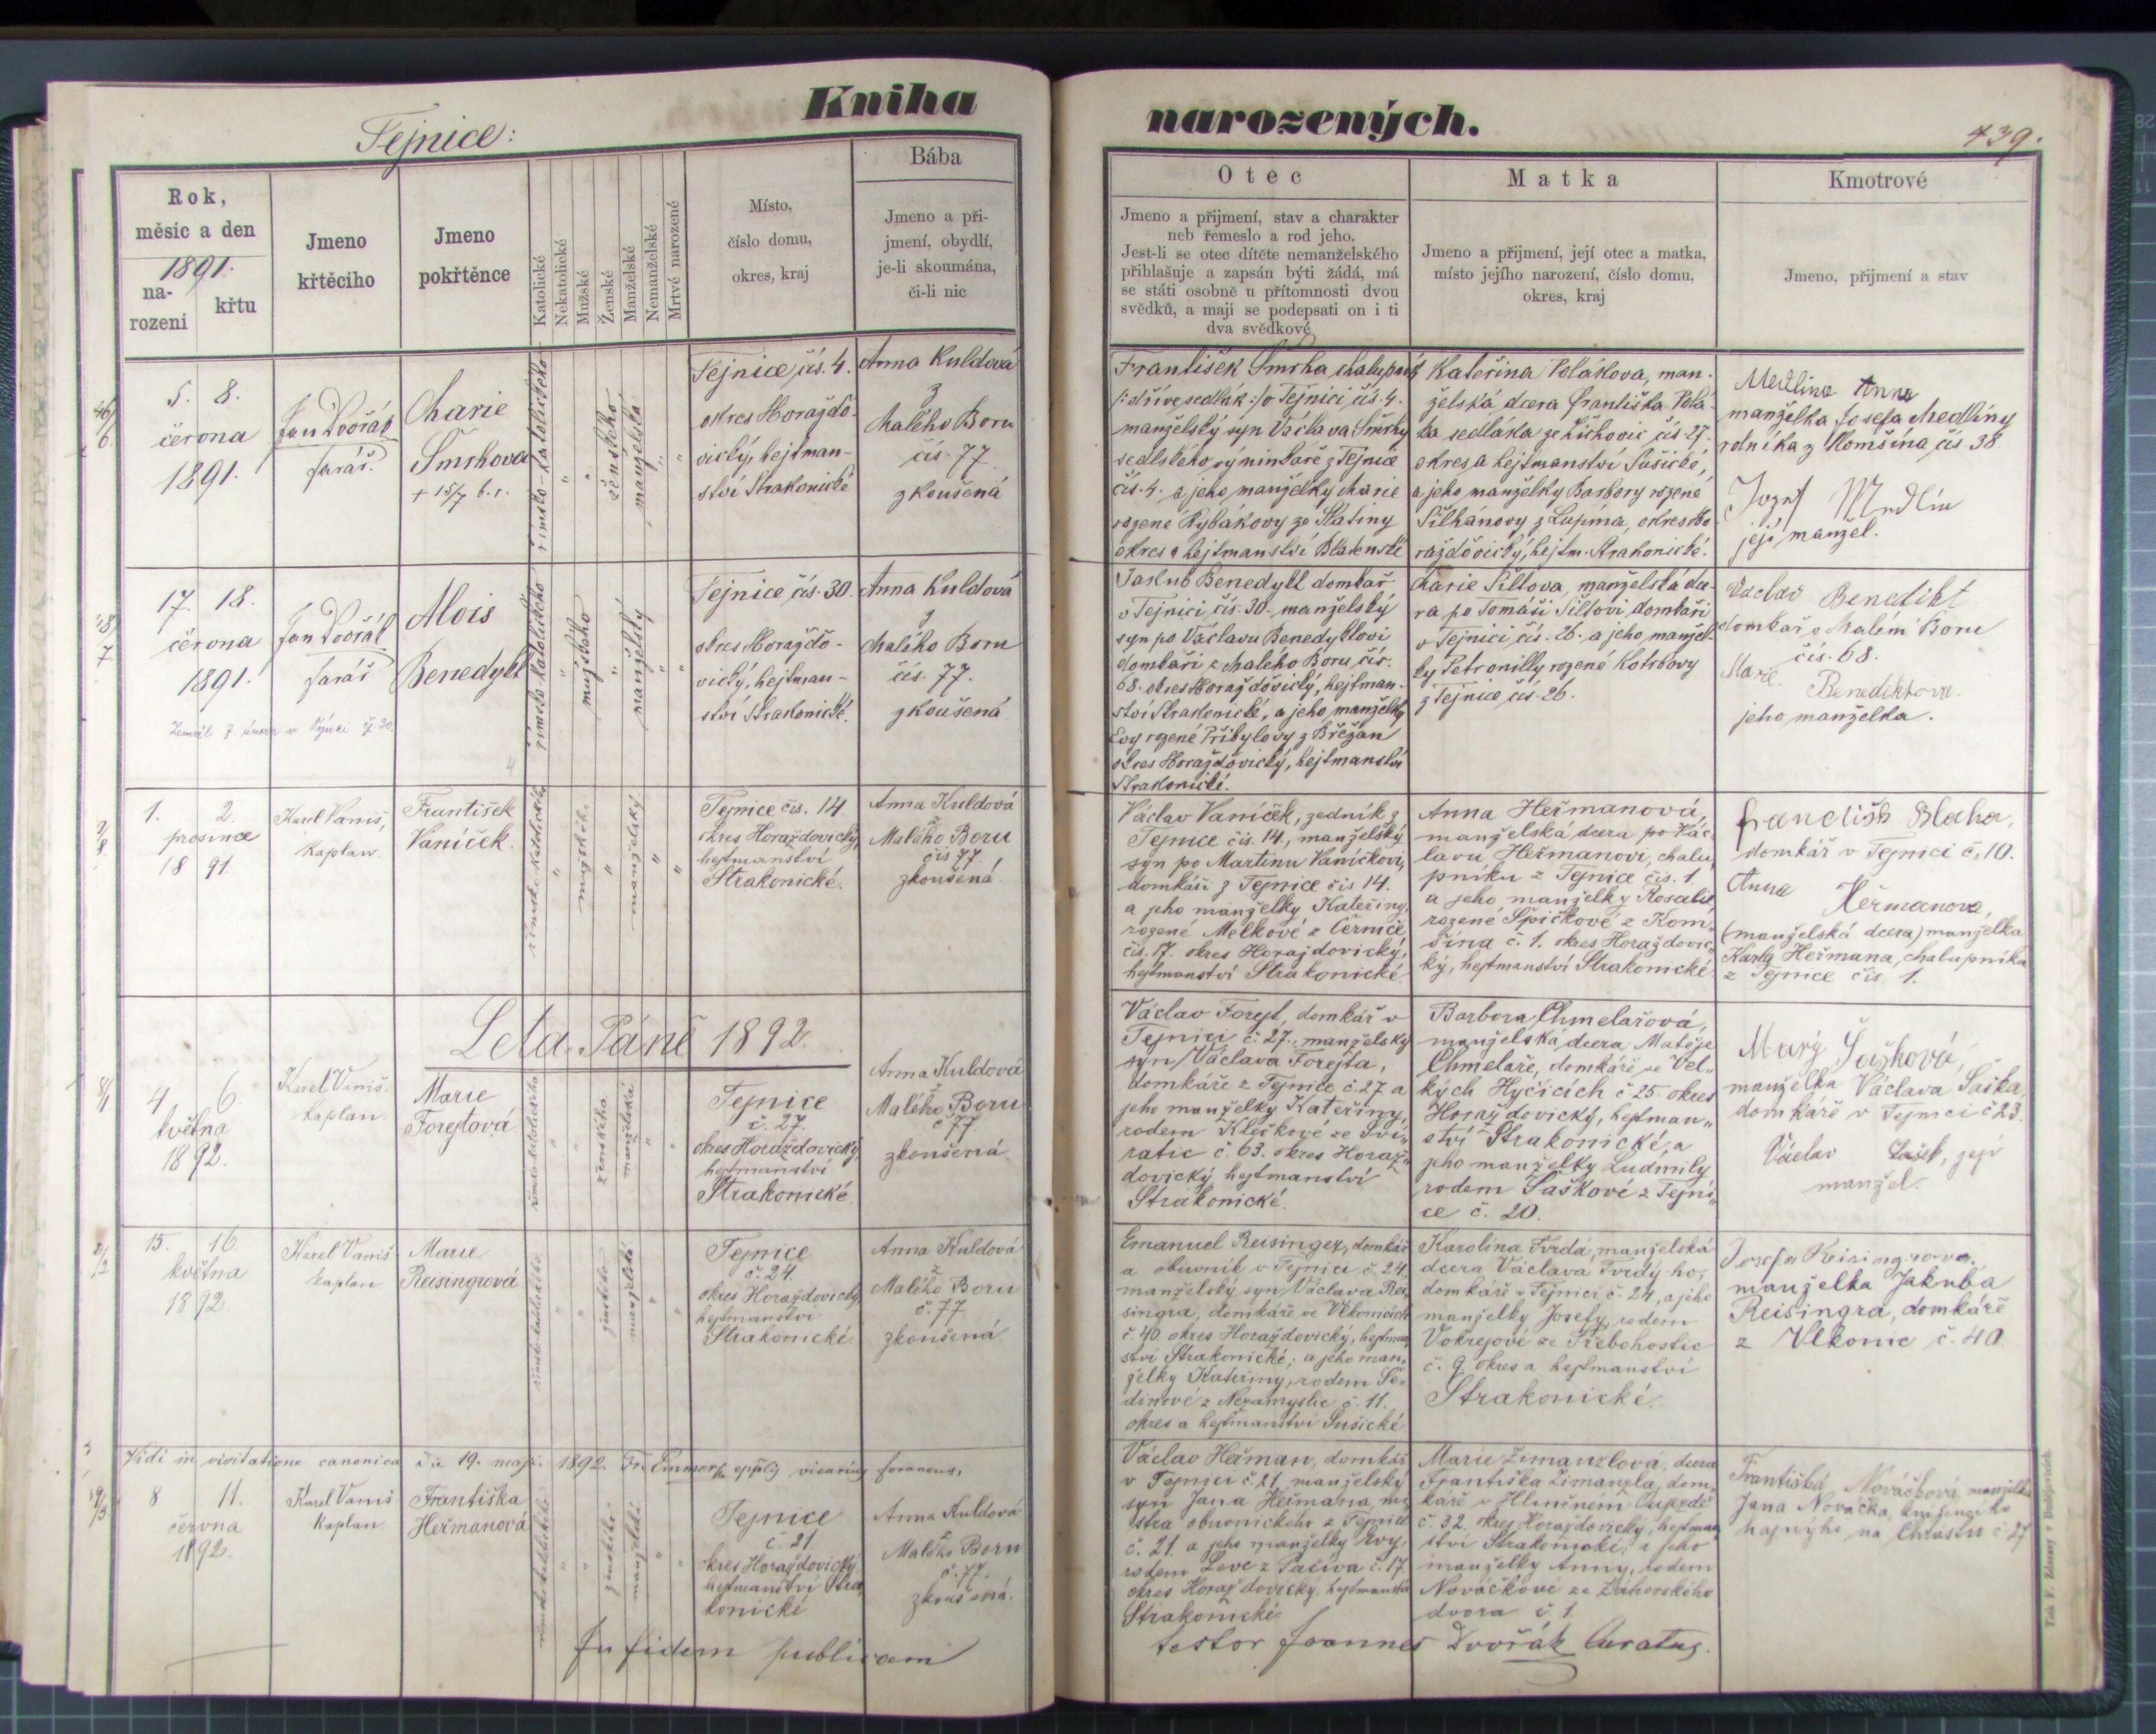 Kniha narozených.
Tejnice:
439.
Rok,
měsic a den
1891.
na-
rozeni
křtu
Jmeno
křtěciho
Jmeno
pokřtěnce
Katolické
Nekatolické
Mužské
Ženské
Manželské
Nemanželské
Mrtvé narozené
Místo,
číslo domu,
okres, kraj
Bába
Jmeno a při-
jmení, obydlí,
je-li skoumána,
či-li nic
Otec
Jmeno a přijmení, stav a charakter
neb řemeslo a rod jeho.
Jest-li se otec dítěte nemanželského
přihlašuje a zapsán býti žádá, má
se státi osobně u přítomnosti dvou
svědků, a mají se podepsati on i ti
dva svědkové
Matka
Jmeno a přijmení, její otec a matka,
místo jejího narození, číslo domu,
okres, kraj
Kmotrové
Jmeno, přijmení a stav
5. 8.
června
1891.
Jan Dvořák
farář.
Marie
Smrhova
+ 15/7 b. r.
římsko-katolického
ženského
manželská
Tejnice, čís. 4.
okres Horažďo-
vický, hejtman-
ství Strakonické
Anna Kuldová
z
Malého Boru
čís. 77
zkoušená
František Smrha, chalupník
/: dříve sedlák :/ v Tejnici, čís. 4.
manželský syn Václava Smrhy
sedlského výminkáře z Tejnice
čís. 4. a jeho manželky Marie
rozené Rybákovy ze Slatiny
okres a hejtmanství Blatenské
Kateřina Polákova, man-
želská dcera Františka Polá-
ka sedláka ze Žichovic čís. 27.
okres a hejtmanství Sušické,
a jeho manželky Barbory rozené
Šilhánovy z Lupína, okres Ho-
ražďovický, hejtm. Strakonické.
Medlina Anna
manželka Josefa Medliny
rolníka z Komšína čís. 38
Jozef Medlín
její manžel.
17. 18.
června
1891.
Zemřel 7. února v Týnci čp 30.
Jan Dvořák
farář
Alois
Benedykt
římsko katolického
mužského
manželský
Tejnice, čís. 30.
okres Horažďo-
vický, hejtman-
ství Strakonické.
Anna Kuldová
z
Malého Boru
čís. 77.
zkoušená
Jakub Benedykt domkář
v Tejnici čís. 30., manželský
syn po Václavu Benedyktovi
domkáři z Malého Boru čís.
68. okres Horažďovický, hejtman-
ství Strakonické, a jeho manželky
Evy rozené Přibylovy z Břežan
okres Horažďovický, hejtmanství
Strakonické.
Marie Šiltova, manželská dce-
ra po Tomáši Šiltovi domkáři
v Tejnici čís. 26. a jeho manžel-
ky Petronilly rozené Kotrbovy
z Tejnice čís. 26.
Vaclav Benedikt
domkář v Malém Boru
čís. 68.
Marie Benediktova
jeho manželka.
1. 2.
prosince
18 91.
Karel Vaniš,
kaplan
František
Vaníček.
římsko-katolického
mužského
manželský
Tejnice čís. 14
okres Horažďovický,
hejtmanství
Strakonické.
Anna Kuldová
z
Malého Boru
čís 77.
zkoušená
Václav Vaníček, zedník z
Tejnice čís. 14., manželský
syn po Martinu Vaníčkovi,
domkáři z Tejnice čís 14.
a jeho manželky Kateřiny,
rozené Melkové z Černíče
čís. 17. okres Horažďovický,
hejtmanství Strakonické
Anna Heřmanová,
manželská dcera po Vác-
lavu Heřmanovi, chalu-
pníku z Tejnice čís. 1
a jeho manželky Rosalie,
rozené Špičkové z Kom-
šína č. 1. okres Horažďovic-
ký, hejtmanství Strakonické
František Blaha,
domkář v Tejnici č. 10.
Anna Heřmanova,
(manželská dcera) manželka
Karla Heřmana, chalupníka
z Tejnice čís 1.
Leta Páně 1892.
4. 6.
května
18 92.
Karel Vaniš,
kaplan
Marie
Forejtová
ženského
manželská
Tejnice
č. 27.
okres Horažďovický,
hejtmanství
Strakonické.
Anna Kuldová
z
Malého Boru
č 77
zkoušená.
Václav Forejt, domkář v
Tejnici č. 27., manželský
syn Václava Forejta,
domkáře z Tejnice č. 27 a
jeho manželky Kateřiny,
rodem Klečkové ze Svi-
ratic č. 63. okres Horaž-
dovický hejtmanství
Strakonické.
Barbora Chmelařová,
manželská dcera Matěje
Chmelaře, domkáře ve Vel-
kých Hyčicích č 25. okres
Horažďovický, hejtman-
ství Strakonické, a
jeho manželky Ludmily
rodem Šaškové z Tejni-
ce č. 20.
Mary Šašková,
manželka Václava Šaška,
domkáře v Tejnici č 23.
Václav Šašek, její
manžel.
15. 16
května
18 92
Karel Vaniš
kaplan
Marie
Reisingrová
ženského
manželská
Tejnice
č. 24.
okres Horažďovický,
hejtmanství
Strakonické
Anna Kuldová
z
Malého Boru
č. 77
zkoušená
Emanuel Reisinger, domkář
a obuvník v Tejnici č. 24,
manželský syn Václava Rei-
singra, domkáře ve Vlkonicích
č. 40. okres Horažďovický, hejtman-
ství Strakonické; a jeho man-
želky Kateřiny, rodem Še-
dinové z Nezamyslic č. 11.
okres a hejtmanství Sušické
Karolina Tvrdá, manželská
dcera Václava Tvrdý-ho,
domkáře v Tejnici č. 24, a jeho
manželky Josefy, rodem
Vokrojové ze Třebohostic
č. 9. okres a hejtmanství
Strakonické.
Josefa Reisingrova,
manželka Jakuba
Reisingra, domkáře
z Vlkonic č. 40
Vidi in visitatione canonica d. d. 19. maji 1892. Fr. Emmer, vicarius foraneus.
8 11.
června
1892.
Karel Vaniš
kaplan
Františka
Heřmanová
ženského
manželská
Tejnice
č. 21
okres Horažďovický
hejtmanství Stra-
konické
Anna Kuldová
z
Malého Boru
č. 77
zkoušená.
Václav Heřman, domkář
v Tejnici č. 21, manželský
syn Jana Heřmana, mi-
stra obuvnického z Tejnice
č. 21. a jeho manželky Evy,
rodem Levé z Pačiva č. 17
okres Horažďovický hejtmanství
Strakonické
Marie Zimanzlová, dcera
Františka Zimanzla, dom-
káře v Hliněném Oujezdě
č. 32. okres Horažďovický, hejtman-
ství Strakonické; a jeho
manželky Anny, rodem
Nováčkové ze Záhorského
dvora č 1.
Františka Nováčková, manželka
Jana Nováčka, knížecího
hajného na Chrastu č 27
In fidem publicam
testor Joannes Dvořák Curatus.